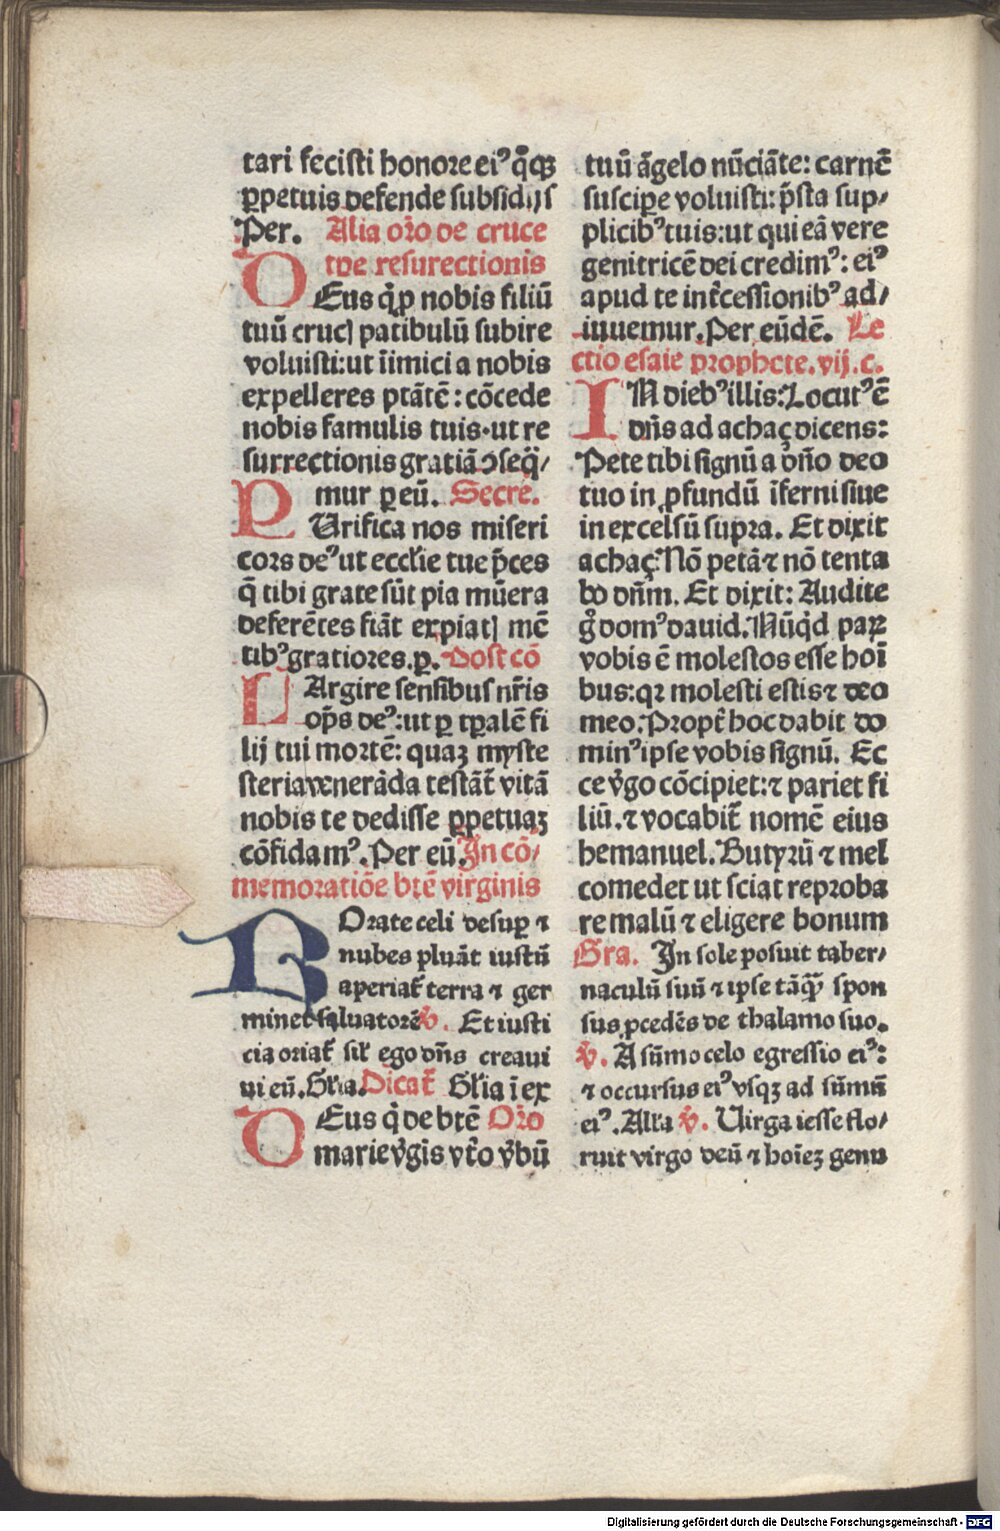 tari fecisti honore ei᾽ q̄cꝗ
ꝑpetuis defende subsidijs
Per. Alia or̄o de cruce
O tpe resurectionis
Eus q̇ ꝓ nobis filiū
tuū crucꝭ patibulū subire
voluisti:ut īimici a nobis
expelleres ptātē: cōcede
nobis famulis tuis·ut re
surrectionis gratiā ↄseq̄/
mur ꝑ eū. Secre.
P Urifica nos miseri
cors de᾽ ut eccl̄ie tue p̄ces
q̄ tibi grate sūt pia mūera
deferētes fiāt expiatꝭ mē
tib᾽ gratiores.ꝑ. Post cō
L Argire sensibus nr̄is
op̄s de᾽:ut ꝑ tꝑalē fi
lij tui mortē: quaꝫ myste
steria venerāda testāt᷑ vitā
nobis te dedisse ꝑpetuaꝫ
cōfidam᾽. Per eū. In cō/
memoratiōe btē virginis
R Orate celi desuꝑ ⁊
nubes pluāt iustū
aperiat᷑ terra ⁊ ger
minet saluatorē ℣. Et iusti
cia oriat᷑ sil᷑ ego dn̄s creaui
ui eū. Gl̄ia. Dicat᷑ Gl̄ia ī ex
D Eus q̇ de btē Or̄o
marie v̄gis vt᷑o v̄bū
tuū āgelo nūciāte: carnē
suscipe voluisti: p̄sta sup/
plicib᾽ tuis:ut qui eā vere
genitricē dei credim᾽: ei᾽
apud te int᷑cessionib᾽ ad/
iuuemur. Per eūdē. Le
ctio esaie prophete.vij.c.
I N dieb᾽ illis: Locut᾽ ē
dn̄s ad achaꝫ dicens:
Pete tibi signū a dn̄o deo
tuo in ꝓfundū īferni siue
in excelsū supra. Et dixit
achaꝫ: Nō petā ⁊ nō tenta
bo dn̄m. Et dixit: Audite
g̊ dom᾽ dauid. Nūq̇d parꝫ
vobis ē molestos esse hoī
bus:qꝛ molesti estis ⁊ deo
meo. Propt᷑ hoc dabit do
min᾽ ipse vobis signū. Ec
ce v̄go cōcipiet: ⁊ pariet fi
liū. ⁊ vocabit᷑ nomē eius
hemanuel. Butyrū ⁊ mel
comedet ut sciat reproba
re malū ⁊ eligere bonum
Gra. In sole posuit taber/
naculū suū ⁊ ipse tāq̄ꝫ spon
sus ꝓcedēs de thalamo suo.
℣. A sūmo celo egressio ei᾽:
⁊ occursus ei᾽ vsqꝫ ad sūmū
ei᾽. All̄a ℣. Uirga iesse flo/
ruit virgo deū ⁊ hoīeꝫ genu
Digitalisierung gefördert durch die Deutsche Forschungsgemeinschaft - DFG